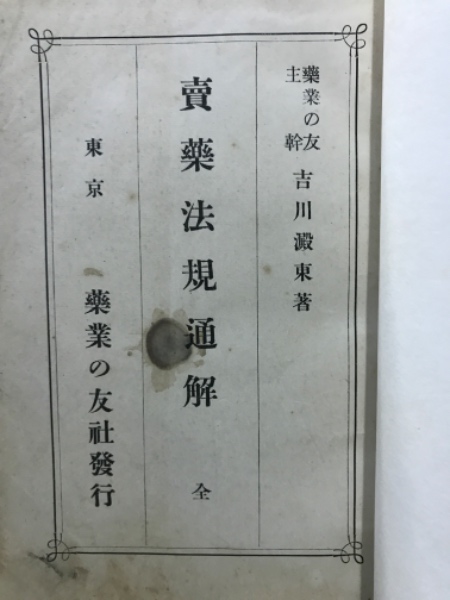 藥業の友
主幹 吉川澱東著
賣藥法規通解 全
東京 藥業の友社發行